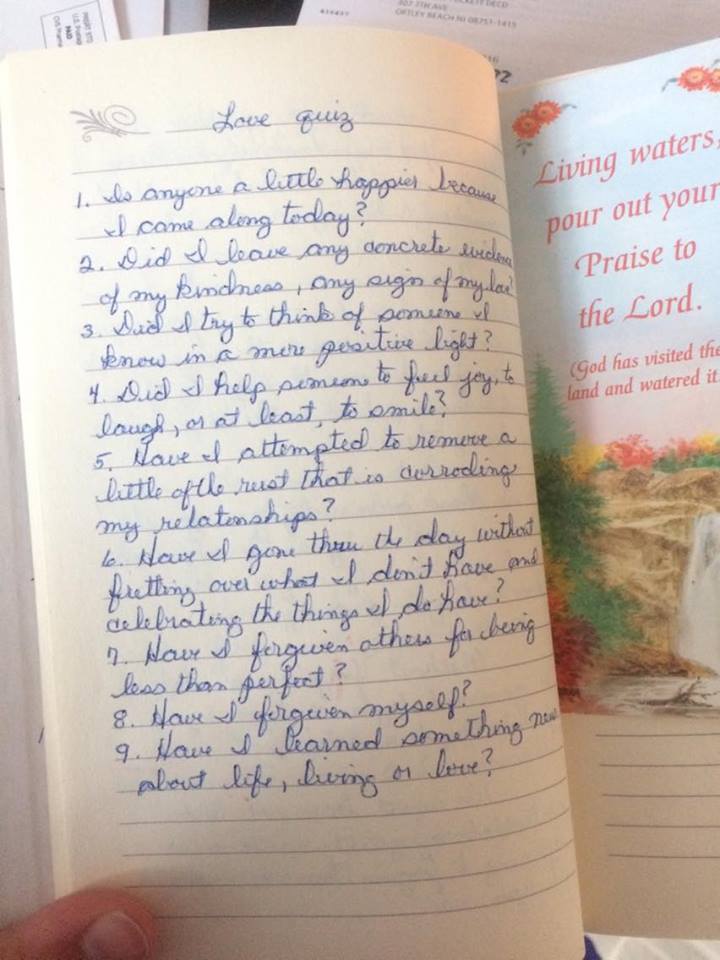 PRSRT STD
U.S. Posta
PAID
307 7TH AVE
ORTLEY BEACH NJ 08751-1415
Love quiz
1. Is anyone a little happier because
I came along today?
2. Did I leave any concrete evidence
of my kindness, any sign of my love?
3. Did I try to think of someone I
know in a more positive light?
4. Did I help someone to feel joy, to
laugh, or at least, to smile?
5. Have I attempted to remove a
little of the rust that is corroding
my relationships?
6. Have I gone thru the day without
fretting over what I don't have and
celebrating the things I do have?
7. Have I forgiven others for being
less than perfect?
8. Have I forgiven myself?
9. Have I learned something new
about life, living or love?
Living waters,
pour out your
Praise to
the Lord.
(God has visited the
land and watered it